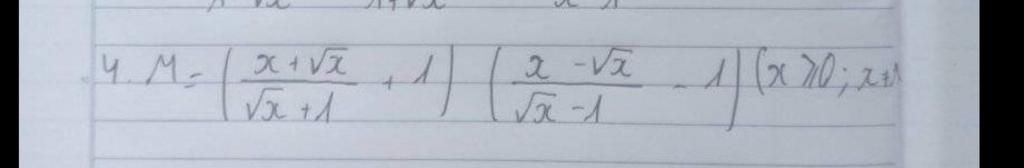 4. M = (\frac{x + \sqrt{x}}{\sqrt{x} + 1} + 1) (\frac{x - \sqrt{x}}{\sqrt{x} - 1} - 1) (x ≥ 0; x ≠ 1